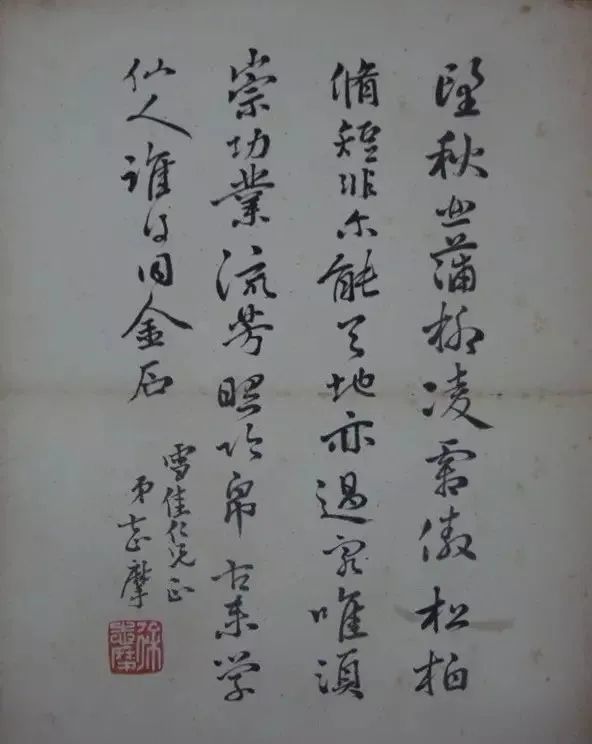 望秋悲蒲柳凌霜傲松柏
脩短非尔能天地亦過客唯須
崇功業流芳照竹帛古来学
仙人誰得同金石
雪佳仁兄正
弟志摩
徐志摩